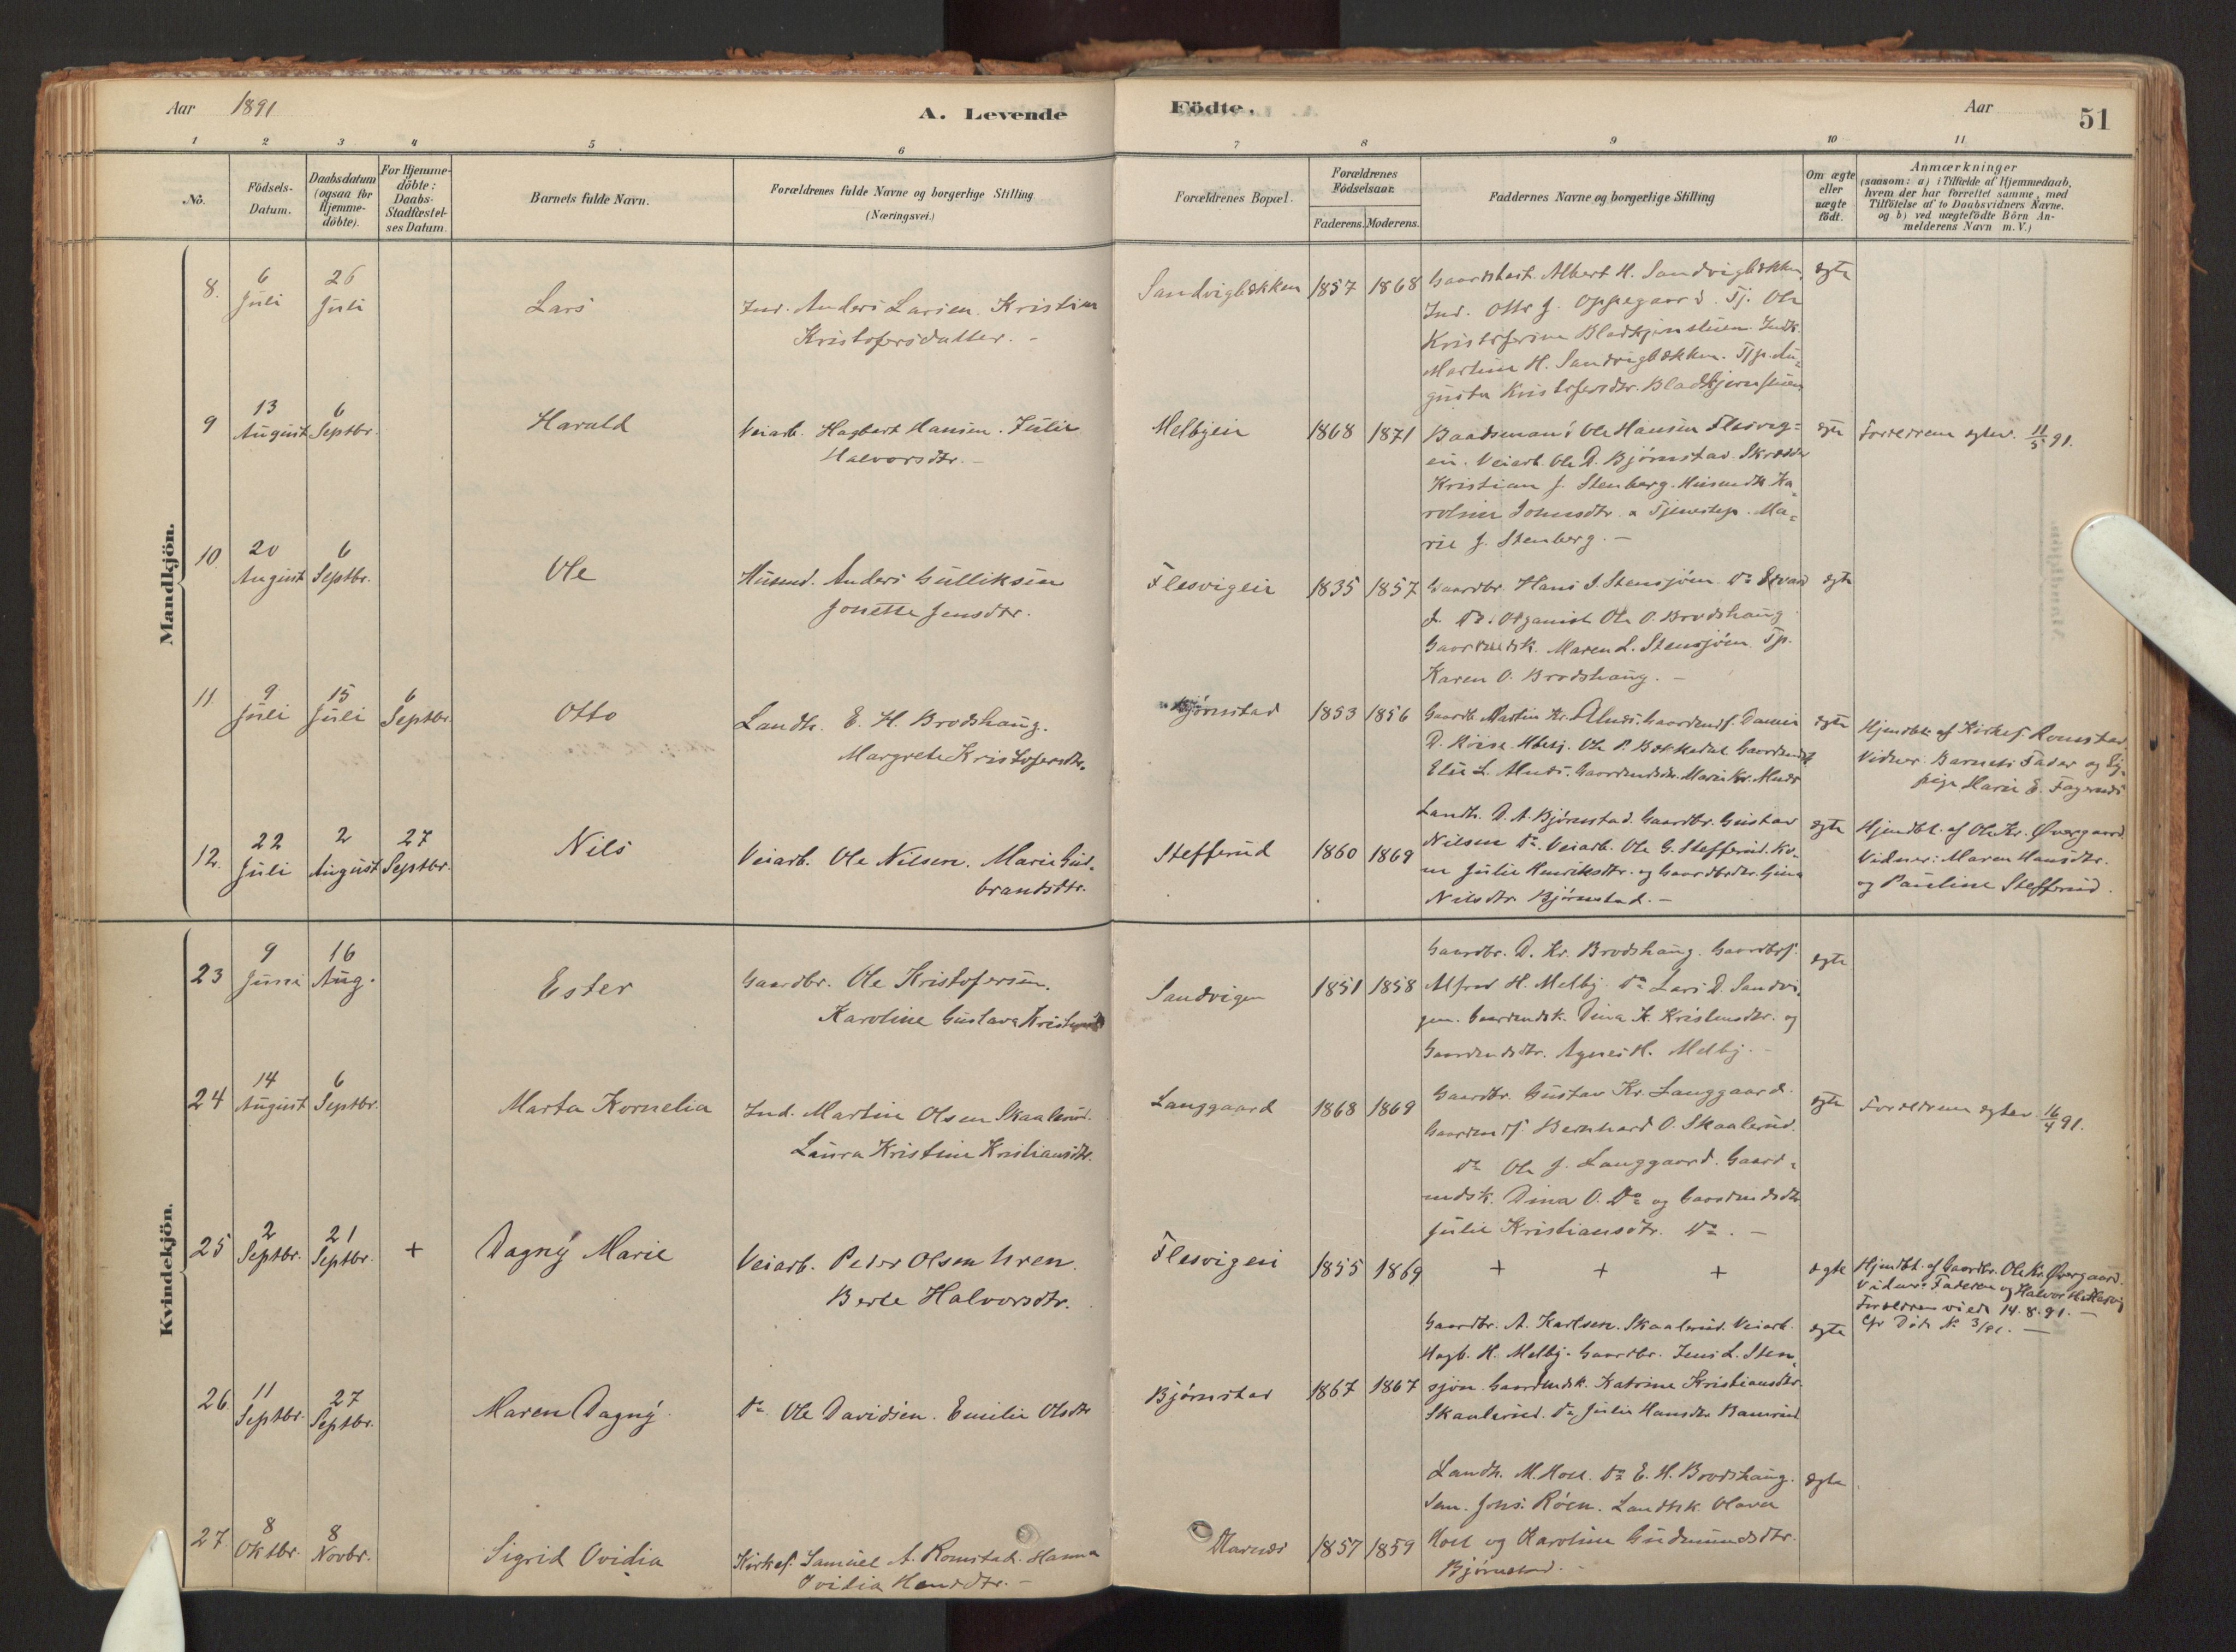 Aar 1891
A. Levende
Födte.
Aar
51
1 2 3 4 5 6 7 8 9 10 11
No.
Födsels-
Datum.
Daabsdatum
(ogsaa for
Hjemme-
döbte).
For Hjemme-
döbte:
Daabs-
Stadfæstel-
ses Datum.
Barnets fulde Navn.
Forældrenes fulde Navne og borgerlige Stilling
(Næringsvei.)
Forældrenes Bopæl.
Forældrenes
Födselsaar.
Faderens. Moderens.
Faddernes Navne og borgerlige Stilling
Om ægte
eller
uægte
födt.
Anmærkninger
(saasom: a) i Tilfælde af Hjemmedaab,
hvem der har forrettet samme, med
Tilföielse af to Daabsvidners Navne.
og b) ved uægtefödte Börn An-
melderens Navn m. V.)
Mandkjön.
8. 6 Juli 26 Juli
Lars
Ind. Anders Larsen. Kristine
Kristofersdatter. -
Sandvigbækken 1857 1868
Albert H. Sandvigbækken
Ind. Otto J. Oppegaard. Tj. Ole
Kristoferine
Martine H. Sandvigbækken.
ægte
9 13 August 6 Septbr.
Harald
Veiarb. Hagbart Hansen. Julie
Halvorsdtr. -
Melbyeie 1868 1871
Baadsmand Ole Hansen Flesvig=
ei. Veiarb. Ole D. Bjørnstad. Skrædder
Kristian J. Stenberg. Husmdk. Ka=
roline Johnsdtr. & Tjenestep. Ma=
rie J. Stenberg. -
ægte
Forældrene egtev. 11/5 91.
10 20 August 6 Septbr.
Ole
Husmd. Anders Gulliksen
Jonette Jensdtr.
Flesvigeie 1835 1857
Gaardbr. Hans J. Stensjöen Do Edvard
J. Do. Organist Ole O. Brodshaug
Maren L. Stensjöen Tp.
Karen O. Brodshaug. -
ægte
11. 9 Juli 15 Juli 6 Septbr.
Otto
Landh. E. H. Brodshaug.
Margrethe Kristofersdtr.
Bjørnstad 1853 1856
Gaardb. Martin Kr. Alnæs.
Ole P. Bækkedal
Else L. Alnæs. Marie Kr. Alnæs
ægte
Hjemdbt. af Kirkes. Romstad
Vidner Barnets Fader og
pige Marie E. Fagernæs
12. 22 Juli 2 August 27 Septbr.
Nils
Veiarb. Ole Nilsen. Marie Gud=
brandsdtr.
Stefferud 1860 1869
Landh. D. A. Bjørnstad. Gaardbr. Gustav
Nilsen Do. Veiarb. Ole G. Stefferud. Ko=
ne Julie Henriksdtr. og Gaardbrdtr. Gina
Nilsdtr. Bjørnstad. -
ægte
Hjemdbt. af Ole Kr. Øvergaard.
Vidner: Maren Hansdtr.
og Pauline Stefferud.
Kvindekjön.
23 9 Juni 16 Aug.
Ester
Gaardbr. Ole Kristofersen.
Karoline Gustava
Sandvigen 1851 1858
Gaardbr. D. Kr. Brodshaug. Gaardbrs.
Alfred H. Melby. Do Lars D. Sandvi=
gen. Gaardmdsk. Dina K. Kristensdtr. og
Gaardmdsdtr. Agnes H. Melby. -
ægte
24 14 August 6 Septbr.
Marta Kornelia
Ind. Martin Olsen Skaalerud.
Laura Kristine Kristiansdtr.
Langgaard 1868 1869
Gaardbr. Gustav Kr. Langgaard.
Gaardmds. Bernhard O. Skaalerud.
Do Ole J. Langgaard. Gaard=
mdsk. Dina O. Do og Gaardmdsdtr.
Julie Kristiansdtr. Do. -
ægte
Forældrene egtev. 16/4 91.
25 2 Septbr. 21 Septbr. +
Dagny Marie
Veiarb. Peder Olsen Uren.
Berte Halvorsdtr.
Flesvigeie 1855 1869
+ + +
ægte
Hjemdbt. af Gaardbr. Ole Kr. Øvergaard.
Vidner: Faderen og Halvor H. Flesvig
Forældrene viede 14.8.91. -
cfr Döde No 3/91. -
26. 11 Septbr. 27 Septbr.
Maren Dagny.
Do Ole Davidsen. Emilie Olsdtr
Bjørnstad 1867 1867
Gaardbr. A. Karlsen. Skaalerud. Veiarb.
Hagb. H. Melby. Gaardbr. Jens L. Sten=
sjøen. Gaardmdsk. Katrine Kristiansdtr.
Skaalerud. Do Julie Hansdtr.
ægte
27. 8 Oktbr. 8 Novbr.
Sigrid Ovidia
Kirkes. Samuel A. Romstad. Hanna
Ovidia Hansdtr. -
Alarnæs 1857 1859
Landh. M. Hoel. Do E. H. Brodshaug.
Sem. Johs. Röen. Landhsk. Olava
Hoel og Karoline Gudmundsdtr.
Bjørnstad. -
ægte